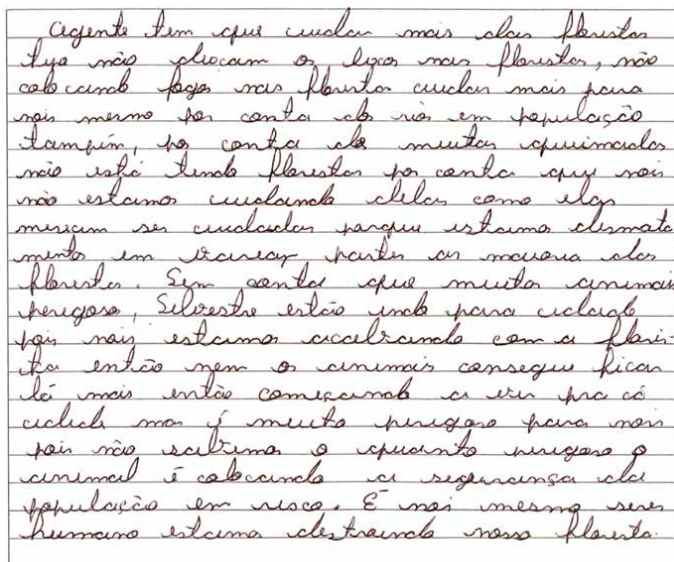 Agente tem que cuidar mais das florestas
tipo não deixcam os lixos nas florestas, não
colocando fogos nas floresta cuidar mais para
nois mesmo por conta do nós em população
tampém, por conta de muitas queimadas
não está tendo florestas por conta que nois
não estamos cuidando delas como elas
meresem ser cuidadas porque estamos desmata
mentos em várias partes as maioria das
floresta. Sem conta que muitos animais
perigoso, Silvestre estão indo para cidade
pois nois estamos acabando com a flores-
ta então nem os animais consegue ficar
lá mais então começando a vir pra cá
cidade mas é muito perigoso para nois
pois não sabemos o quanto perigoso o
animal é colocando a segurança da
população em risco. E nois mesmo seres
humano estamos destruindo nossa floresta.